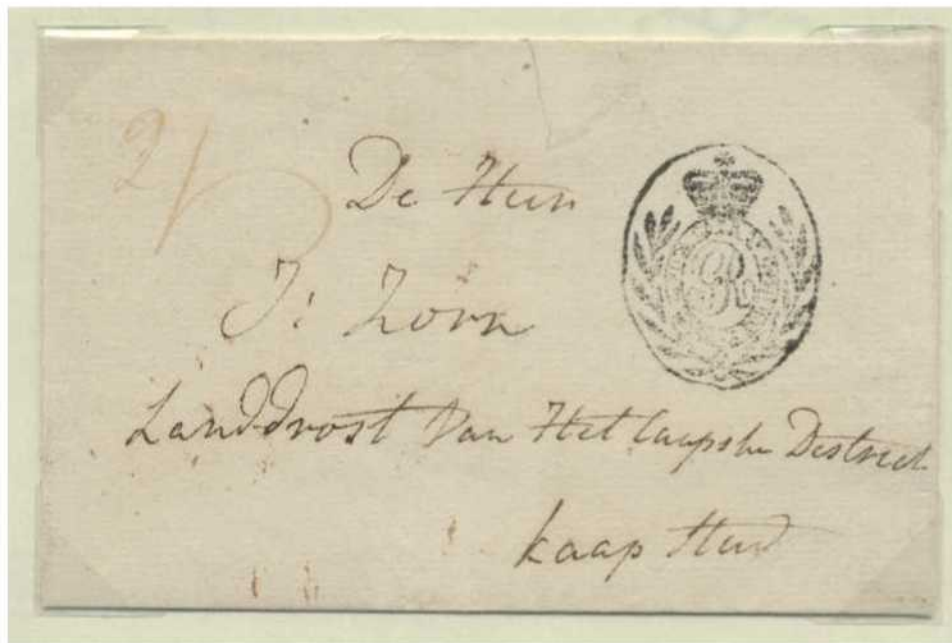 2/
De Heer
J: Zorn
Landdrost Van Het Caapsche District
Kaap Stad
GR